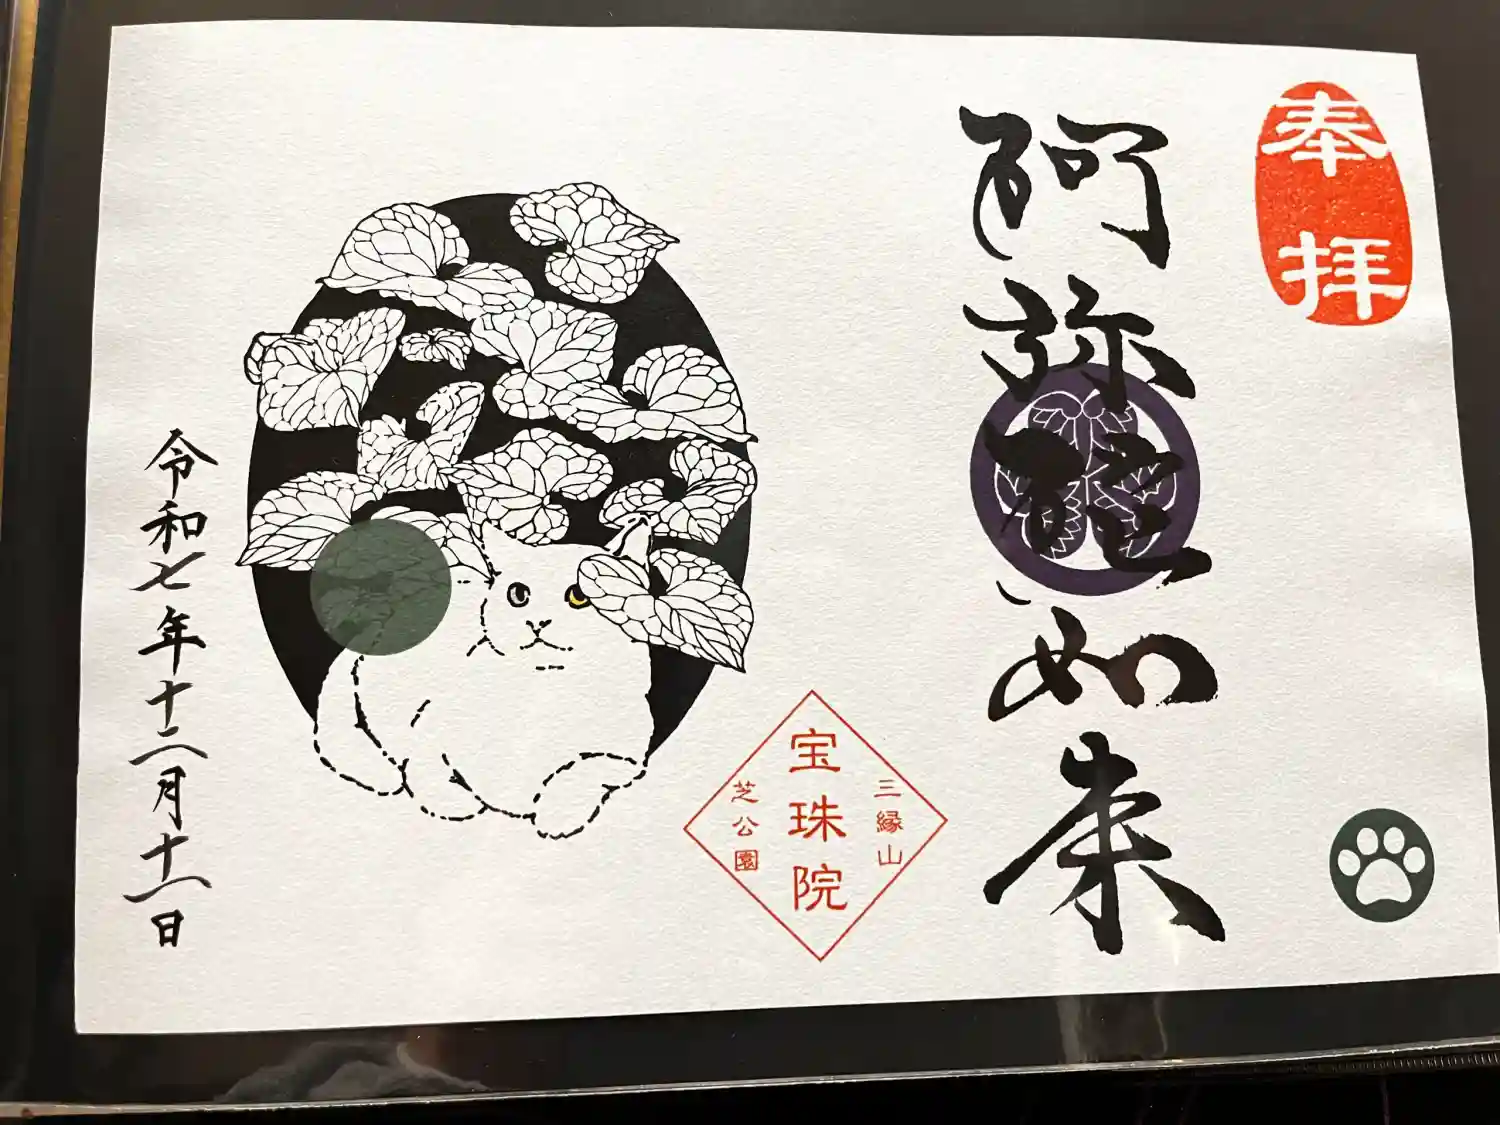 奉拝
阿弥陀如来
三縁山
宝珠院
芝公園
令和七年十二月十一日